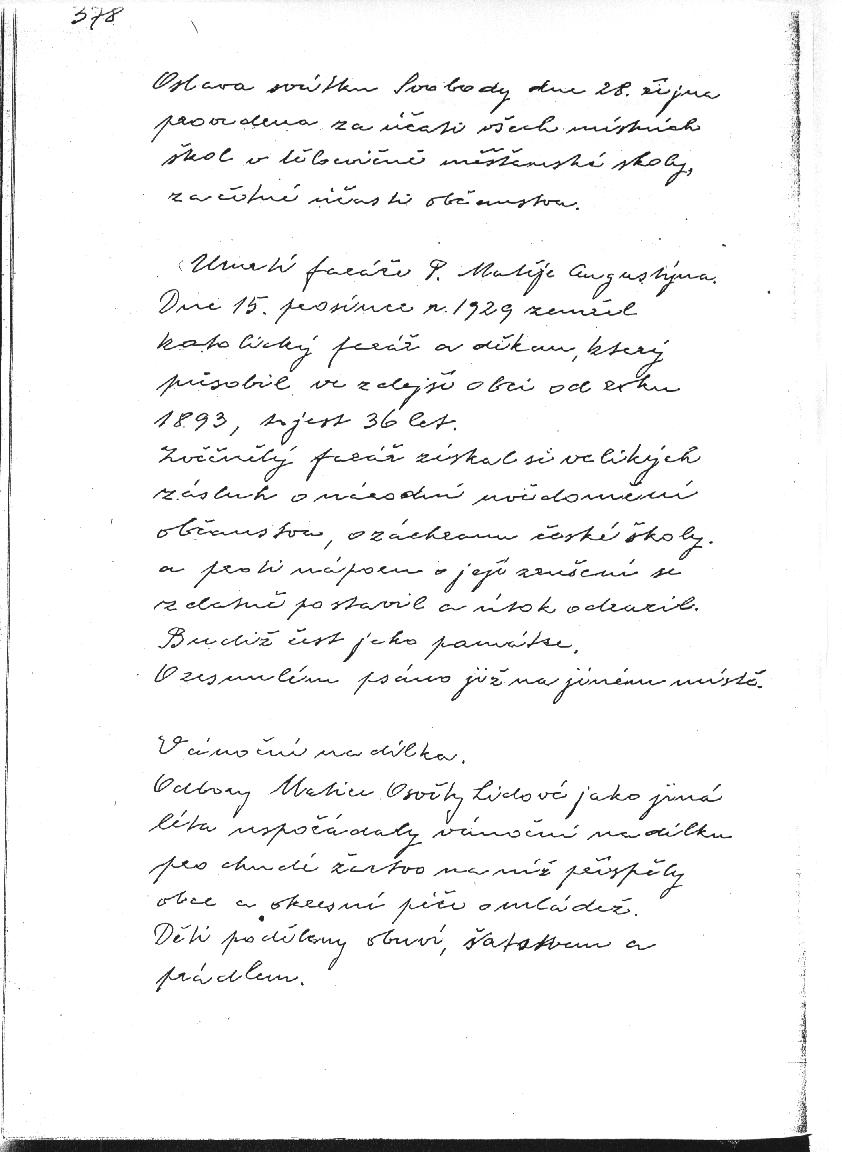 378
Oslava svátku Svobody dne 28. října
provedena za účasti všech místních
škol v tělocvičně měšťanské školy,
za četné účasti občanstva.
Úmrtí faráře P. Matěje Augustýna.
Dne 15. prosince r. 1929 zemřel
katolický farář a děkan, který
působil ve zdejší obci od roku
1893, to jest 36 let.
Zvěčnělý farář získal si velikých
zásluh o národní uvědomění
občanstva, o záchranu české školy.
a proti náporu o její zrušení se
zdatně postavil a útok odrazil.
Budiž čest jeho památce.
O zesnulém psáno již na jiném místě.
Vánoční nadílka.
Odbory Matice Osvěty Lidové jako jiná
léta uspořádaly vánoční nadílku
pro chudé žactvo na níž přispěly
obec a okresní péče o mládež.
Děti poděleny obuví, šatstvem a
prádlem.